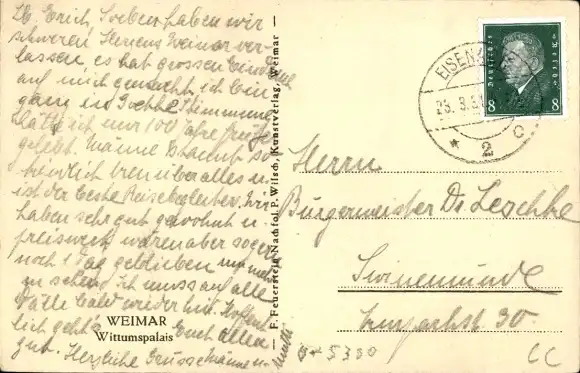 Lb. Erich, Soeben haben wir
schweren Herzens Weimar ver-
lassen es hat grossen Eindruck
auf mich gemacht, ich bin
ganz in Goethe Stimmung
hätte ich nur 100 Jahre früher
gelebt. Männe Staunt so
herrlich treu über alles u.
ist der beste Reisebegleiter. Wir
haben sehr gut gewohnt u.
preiswert, wären aber so gern
noch 1 Tag geblieben um mehr
zu sehen, ich muss auf alle
Fälle bald wieder hin. Hoffent-
lich geht's Euch allen
gut. Herzliche Grüsse Männe u.
Mutti
WEIMAR
Wittumspalais
F. Feuerstein Nachfol. P. Wilsch, Kunstverlag, Weimar
EISEN
23. 3. 3
* 2 c
Deutsches Reich
8 8
Herrn
Bürgermeister Dr. Leschke
Swinemünde
30.
5330
CC